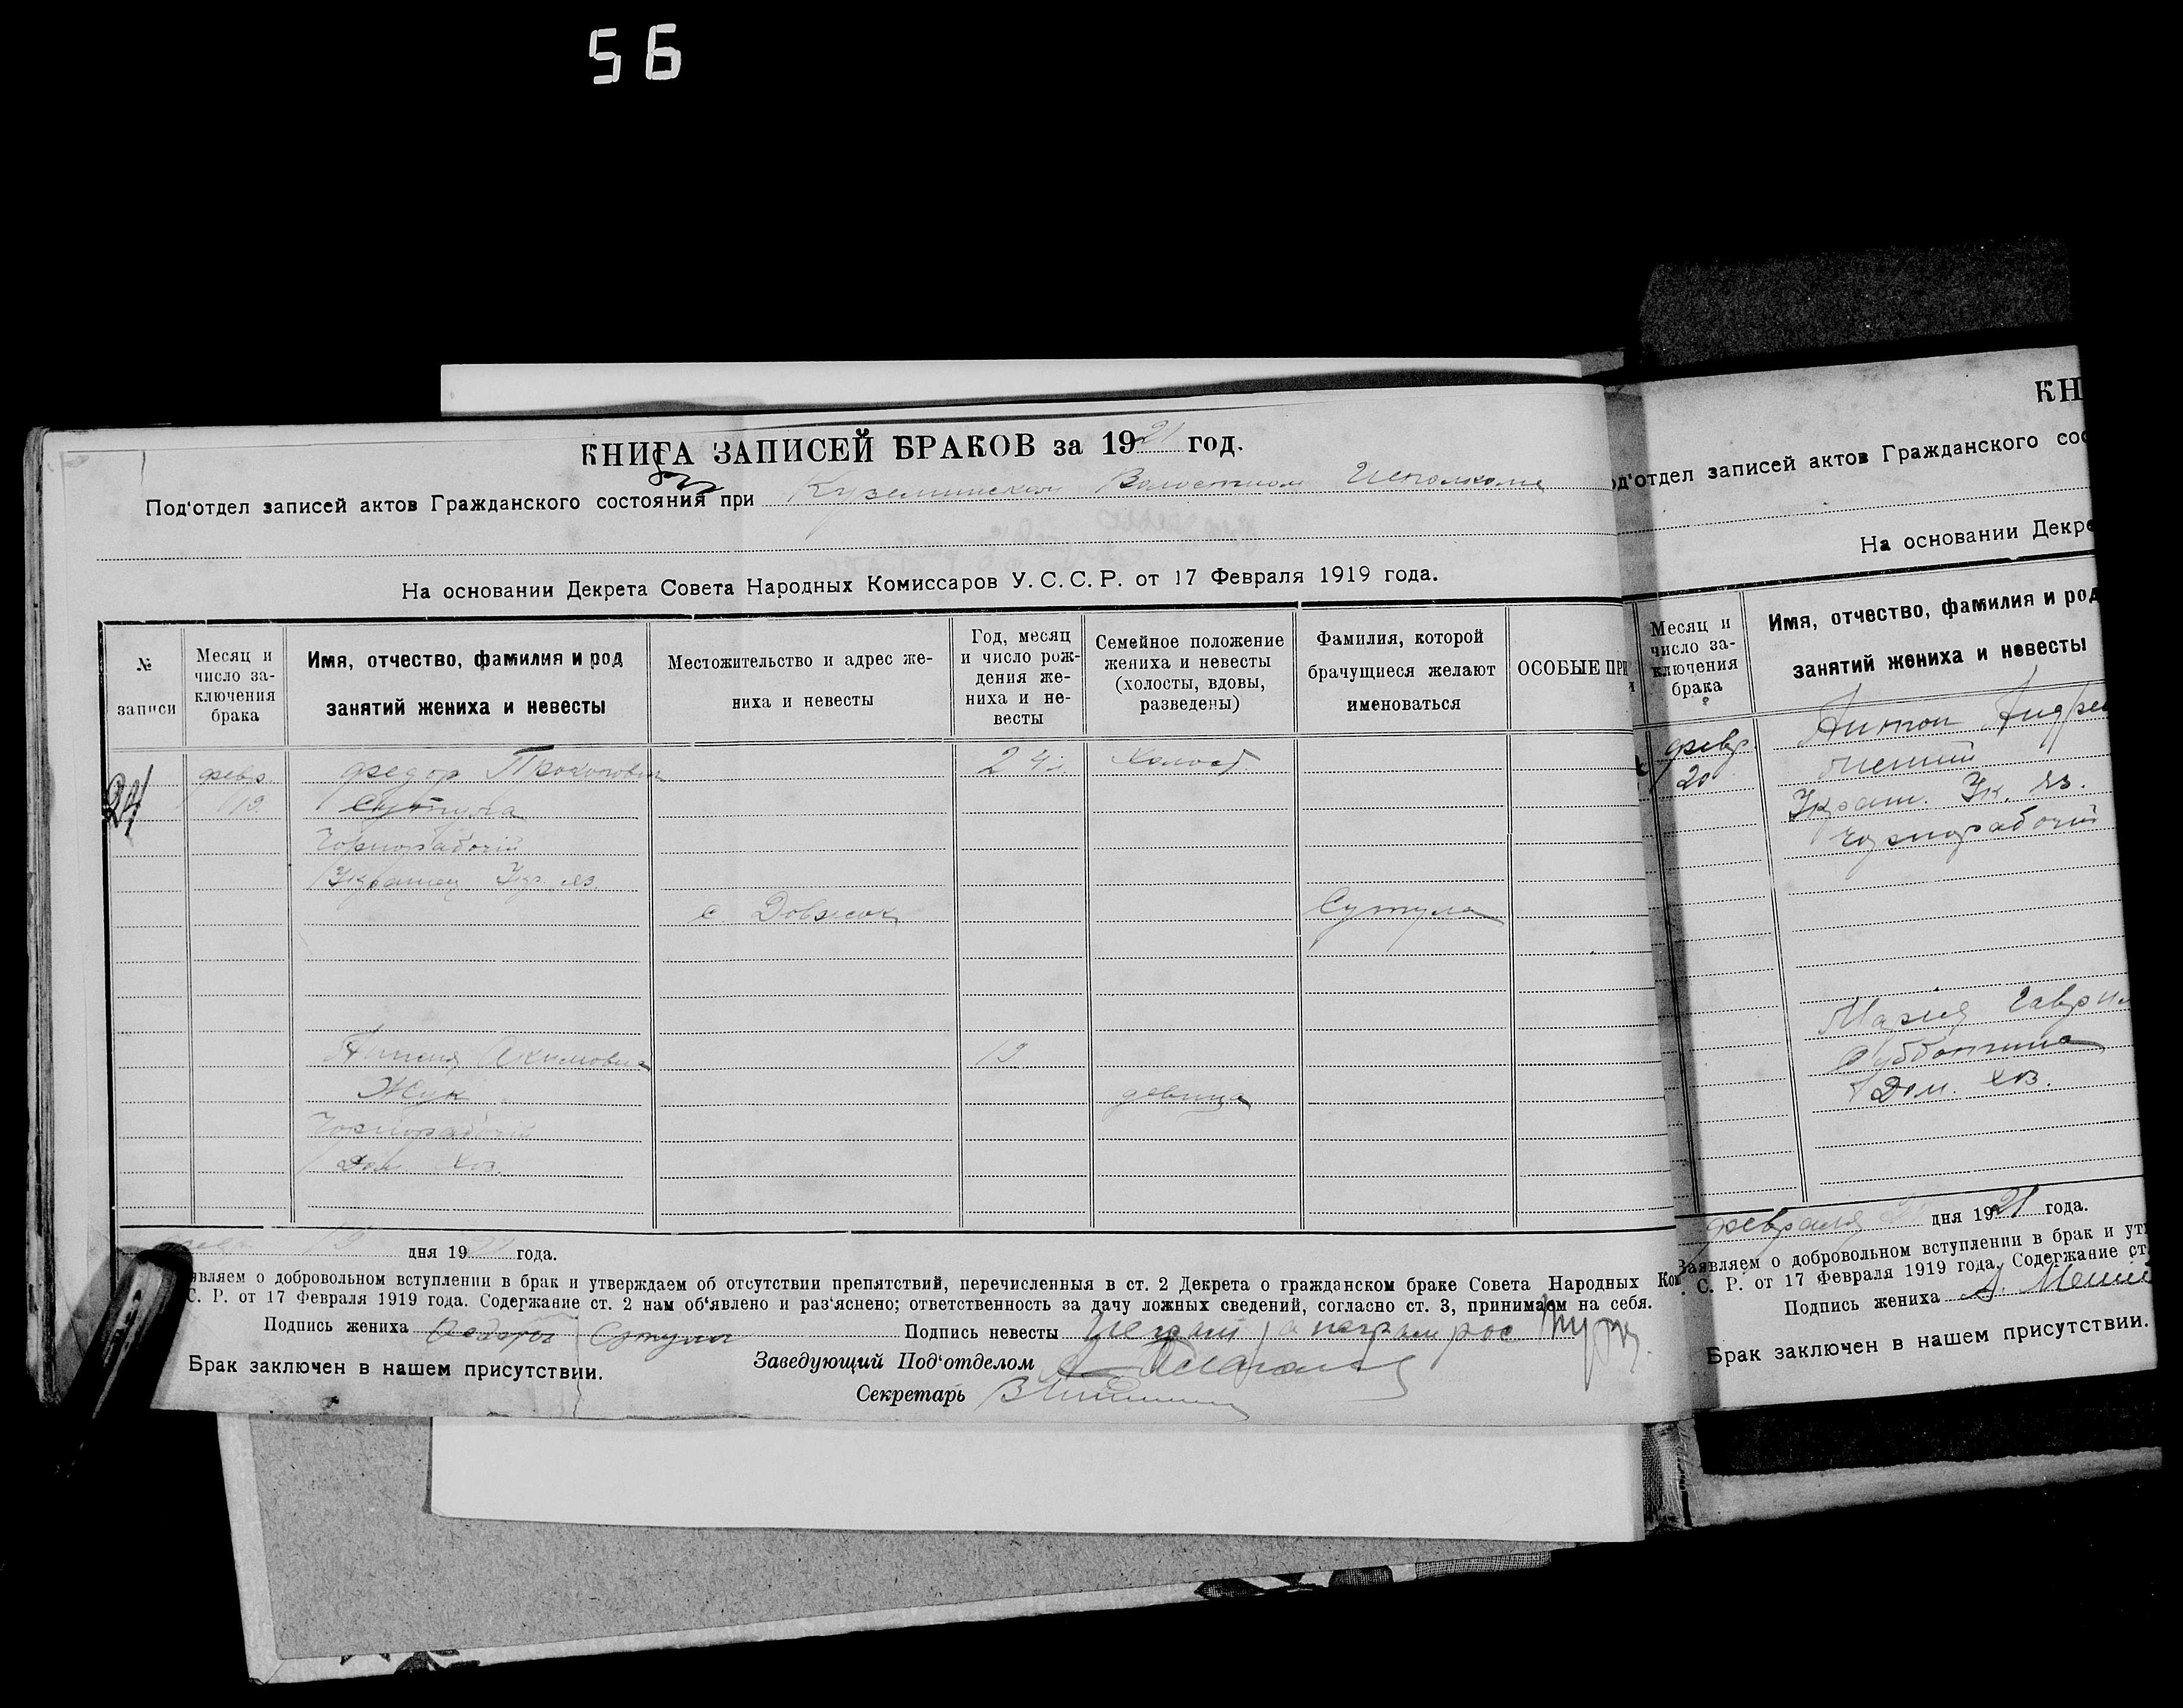 56
КНИГА ЗАПИСЕЙ БРАКОВ за 1921 год.
Под'отдел записей актов Гражданского состояния при Куземинском Волостном Исполкоме
На основании Декрета Совета Народных Комиссаров У.С.С.Р. от 17 Февраля 1919 года.
№ записи
Месяц и число заключения брака
Имя, отчество, фамилия и род занятий жениха и невесты
Местожительство и адрес жениха и невесты
Год, месяц и число рождения жениха и невесты
Семейное положение жениха и невесты (холосты, вдовы, разведены)
Фамилия, которой брачущиеся желают именоваться
ОСОБЫЕ ПРИ
24
февр. 19.
Федор Прокопович
Сутула
Чорнорабочій
Украинец Укр. яз.
с. Довжок
24 л.
Холост
Сутула
Акимовна
Жук
Чорнорабочій
Дом. хоз.
19
девица
19 дня 1921 года.
являем о добровольном вступлении в брак и утверждаем об отсутствии препятствий, перечисленныя в ст. 2 Декрета о гражданском браке Совета Народных Ком
С. Р. от 17 Февраля 1919 года. Содержание ст. 2 нам об'явлено и раз'яснено; ответственность за дачу ложных сведений, согласно ст. 3, принимаем на себя.
Подпись жениха Федор Сутула
Подпись невесты
Брак заключен в нашем присутствии.
Заведующий Под'отделом
Секретарь
КН
од'отдел записей актов Гражданского сос
На основании Декре
Месяц и число заключения брака
Имя, отчество, фамилия и род
занятий жениха и невесты
февр.
20
Антон Андре
Украин. Ук. яз.
Чорнорабочій
Мария Гаврил
Субботина
Дом. хоз.
февраля дня 1921 года.
Заявляем о добровольном вступлении в брак и ут
. С. Р. от 17 Февраля 1919 года. Содержание ст
Подпись жениха А.
Брак заключен в нашем присутствии.